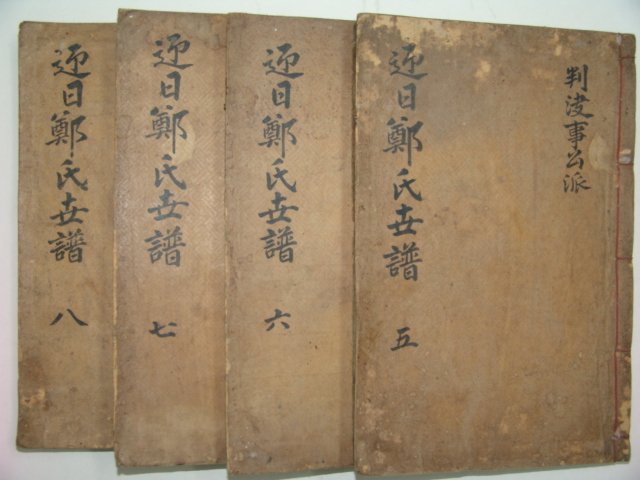 判決事公派
迎日鄭氏世譜
五
迎日鄭氏世譜
六
迎日鄭氏世譜
七
迎日鄭氏世譜
八